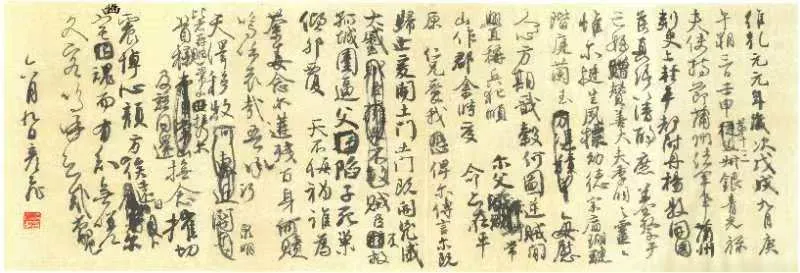 維乾元元年歲次戊戌九月庚
午朔三日壬申第十三叔銀青光祿
夫使持節蒲州諸軍事蒲州
刺史上輕車都尉丹楊縣開國
侯真卿以清酌庶羞祭于
亡姪贈贊善大夫季明之靈
惟爾挺生夙標幼德宗廟瑚璉
階庭蘭玉每慰
人心方期戩穀何圖逆賊間
釁稱兵犯順爾父竭誠常
山作郡余時受命亦在平
原仁兄愛我俾爾傳言爾既
歸止爰開土門土門既開兇威
大蹙賊臣不救
孤城圍逼父陷子死巢
傾卵覆天不悔禍誰為
荼毒念爾遘殘百身何贖
嗚呼哀哉吾承
天澤移牧河關泉明
首櫬及茲同還撫念摧切
震悼心顏方俟遠日
宅魂而有知無嗟
久客嗚呼哀哉尚饗
六月